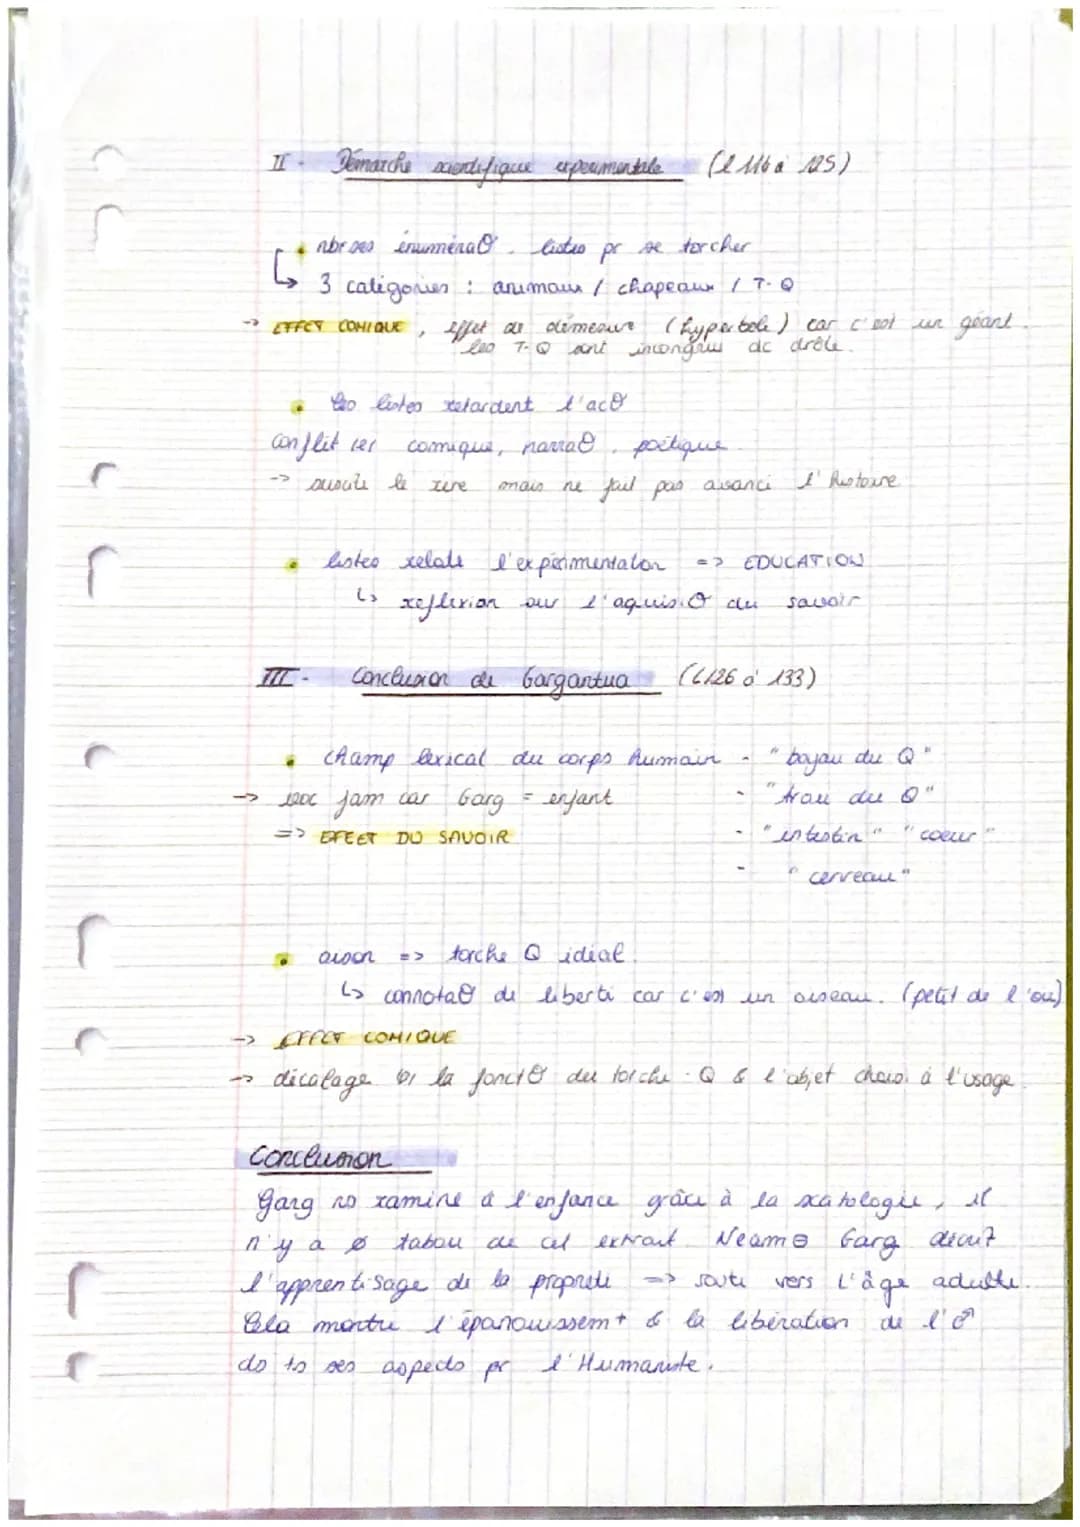 II - Démarche scientifique experimentale (l 116 à 125)
• nbrses énuméraθ. listes pr se torcher
↳ 3 catégories : animaux / chapeaux / T-Q
-> EFFET COMIQUE, effet de démesure (hyperbole) car c'est un géant.
les T-Q sont incongrus dc drôle.
• les listes retardent l'acθ
Conflit comique, narraθ, poétique
-> suscite le rire mais ne fait pas avancé l'histoire
• listes relate l'expérimentation => EDUCATION
↳ reflexion sur l'aquisiθ du savoir
III - Conclusion de Gargantua (l 126 à 133)
• champ lexical du corps humain - "boyau du Q"
-> voc fam car Garg = enfant - "trou du Q"
=> EFFET DU SAVOIR - "intestin" "coeur"
- "cerveau"
• oison => torche Q idéal.
↳ connotaθ de liberté car c'est un oiseau. (petit de l'oie)
-> EFFET COMIQUE
-> décalage la fonctθ du torche-Q & l'objet choisi à l'usage
Conclusion
Garg ns ramène à l'enfance grâce à la scatologie, il
n'y a ø tabou de cet extrait. Néamθ Garg décrit
l'apprentisage de la propreté => saute vers l'âge adulte.
Cela montre l'épanouissemt & la libération de l'♂
ds ts ses aspects pr l'Humaniste.